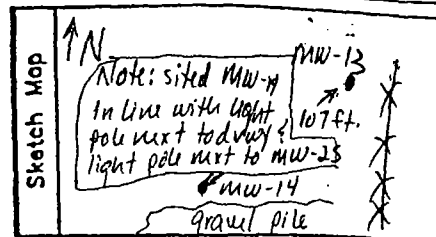 Sketch Map
N
MW-13
Note: sited MW-14
In line with light
pole next to drwy &
light pole next to MW-23
107 ft.
MW-14
gravel pile